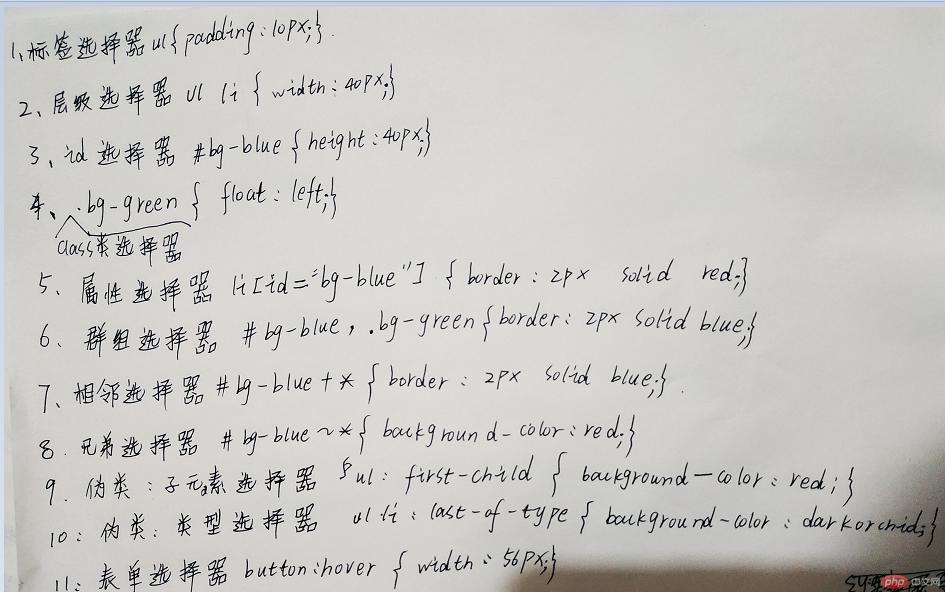 1、标签选择器 ul{padding:10px;}.
2、层级选择器 ul li { width:40px;}
3、id 选择器 #bg-blue {height:40px;}
4、.bg-green { float: left;}
class类选择器
5、属性选择器 li[id="bg-blue"] {border: 2px solid red;}
6、群组选择器 #bg-blue, .bg-green{border: 2px solid blue;}
7、相邻选择器 #bg-blue + * {border: 2px solid blue;}.
8. 兄弟选择器 #bg-blue ~ * { background-color:red;}
9. 伪类:子元素选择器 ul: first-child { background-color: red;}
10: 伪类:类型选择器 ul li: last-of-type { background-color: darkorchid;}
11: 表单选择器 button:hover { width: 56px;}
php 中文网